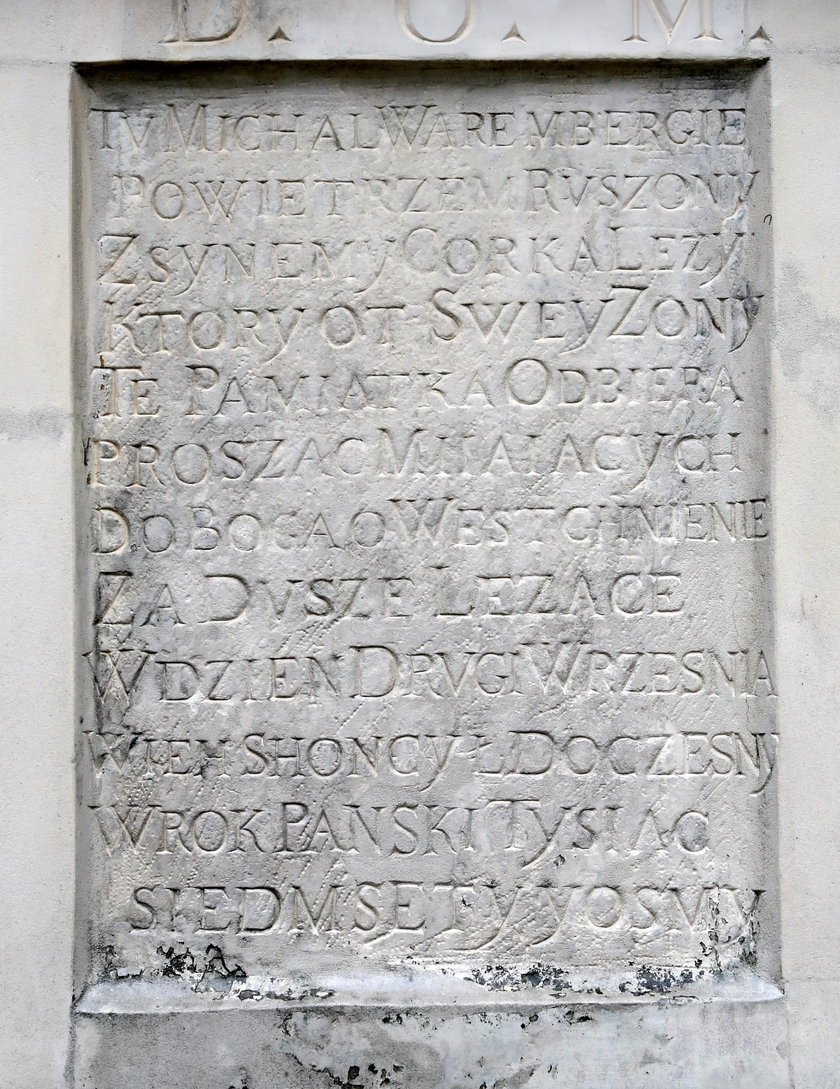 D. O. M.
TV MICHAL WAREMBERGIE
POWIETRZEM RVSZONY
Z SYNEM Y CORKA LEZY
KTORY OT SWEY ZONY
TE PAMIATKA ODBIERA
PROSZAC MIIAIACYCH
DO BOGA O WESTCHNIENIE
ZA DVSZE LEZACE
W DZIEN DRVGI WRZESNIA
WIEH SHONCYŁ DOCZESNY
W ROK PANSKI TYSIAC
SIEDM SETY Y OSMY